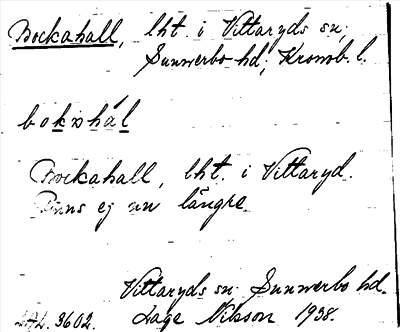 Bockahall, lht. i Vittaryds sn,
Sunnerbo hd, Kronob. l.
bokxhál
Bockahall, lht. i Vittaryd.
Finns ej nu längre.
Vittaryds sn Sunnerbo hd.
3602. Lage Nilsson 1938.